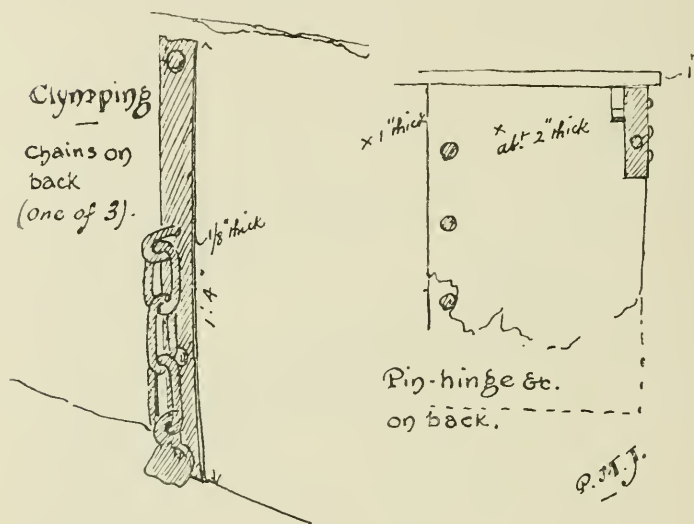 Clymping
Chains on
back
(one of 3).
1/8" thick
1'.4"
x 1" thick
x
abt. 2" thick
1"
Pin-hinge &c.
on back.
P.M.J.